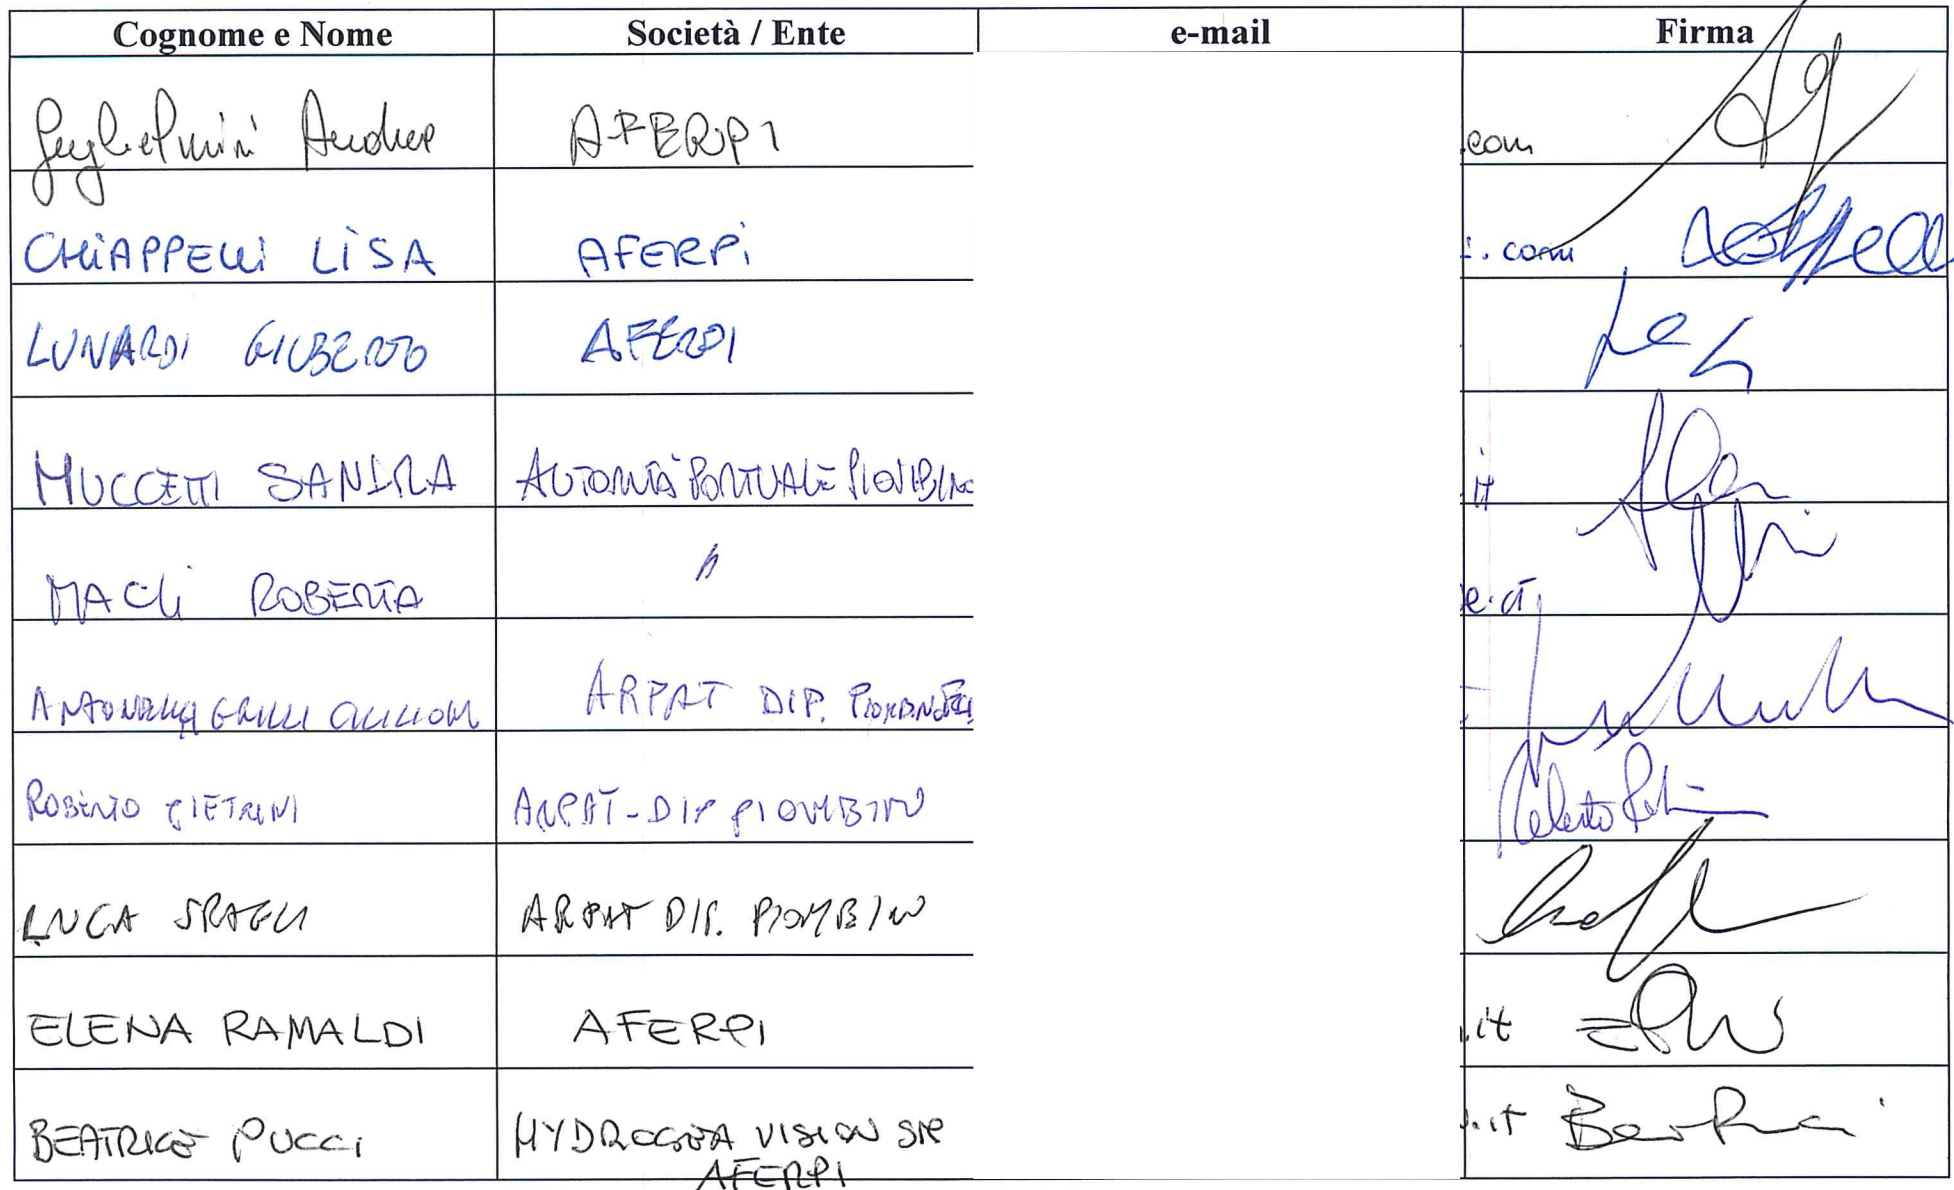 Cognome e Nome Società / Ente e-mail Firma
Guglielmini Andrea AFERPI .com
CHIAPPELLI LISA AFERPI i.com
LUNARDI GIUBERTO AFERPI
MUCCETTI SANDRA AUTORITÀ PORTUALE PIOMBINO .it
MACII ROBERTA " e.it
ANTONELLA GRILLI ARPAT DIP.
ROBERTO PIETRINI ARPAT-DIP PIOMBINO Roberto
LUCA SBAGLI ARPAT DIP. PIOMBINO
ELENA RAMALDI AFERPI .it
BEATRICE PUCCI HYDROGEA VISION Srl .it
AFERPI